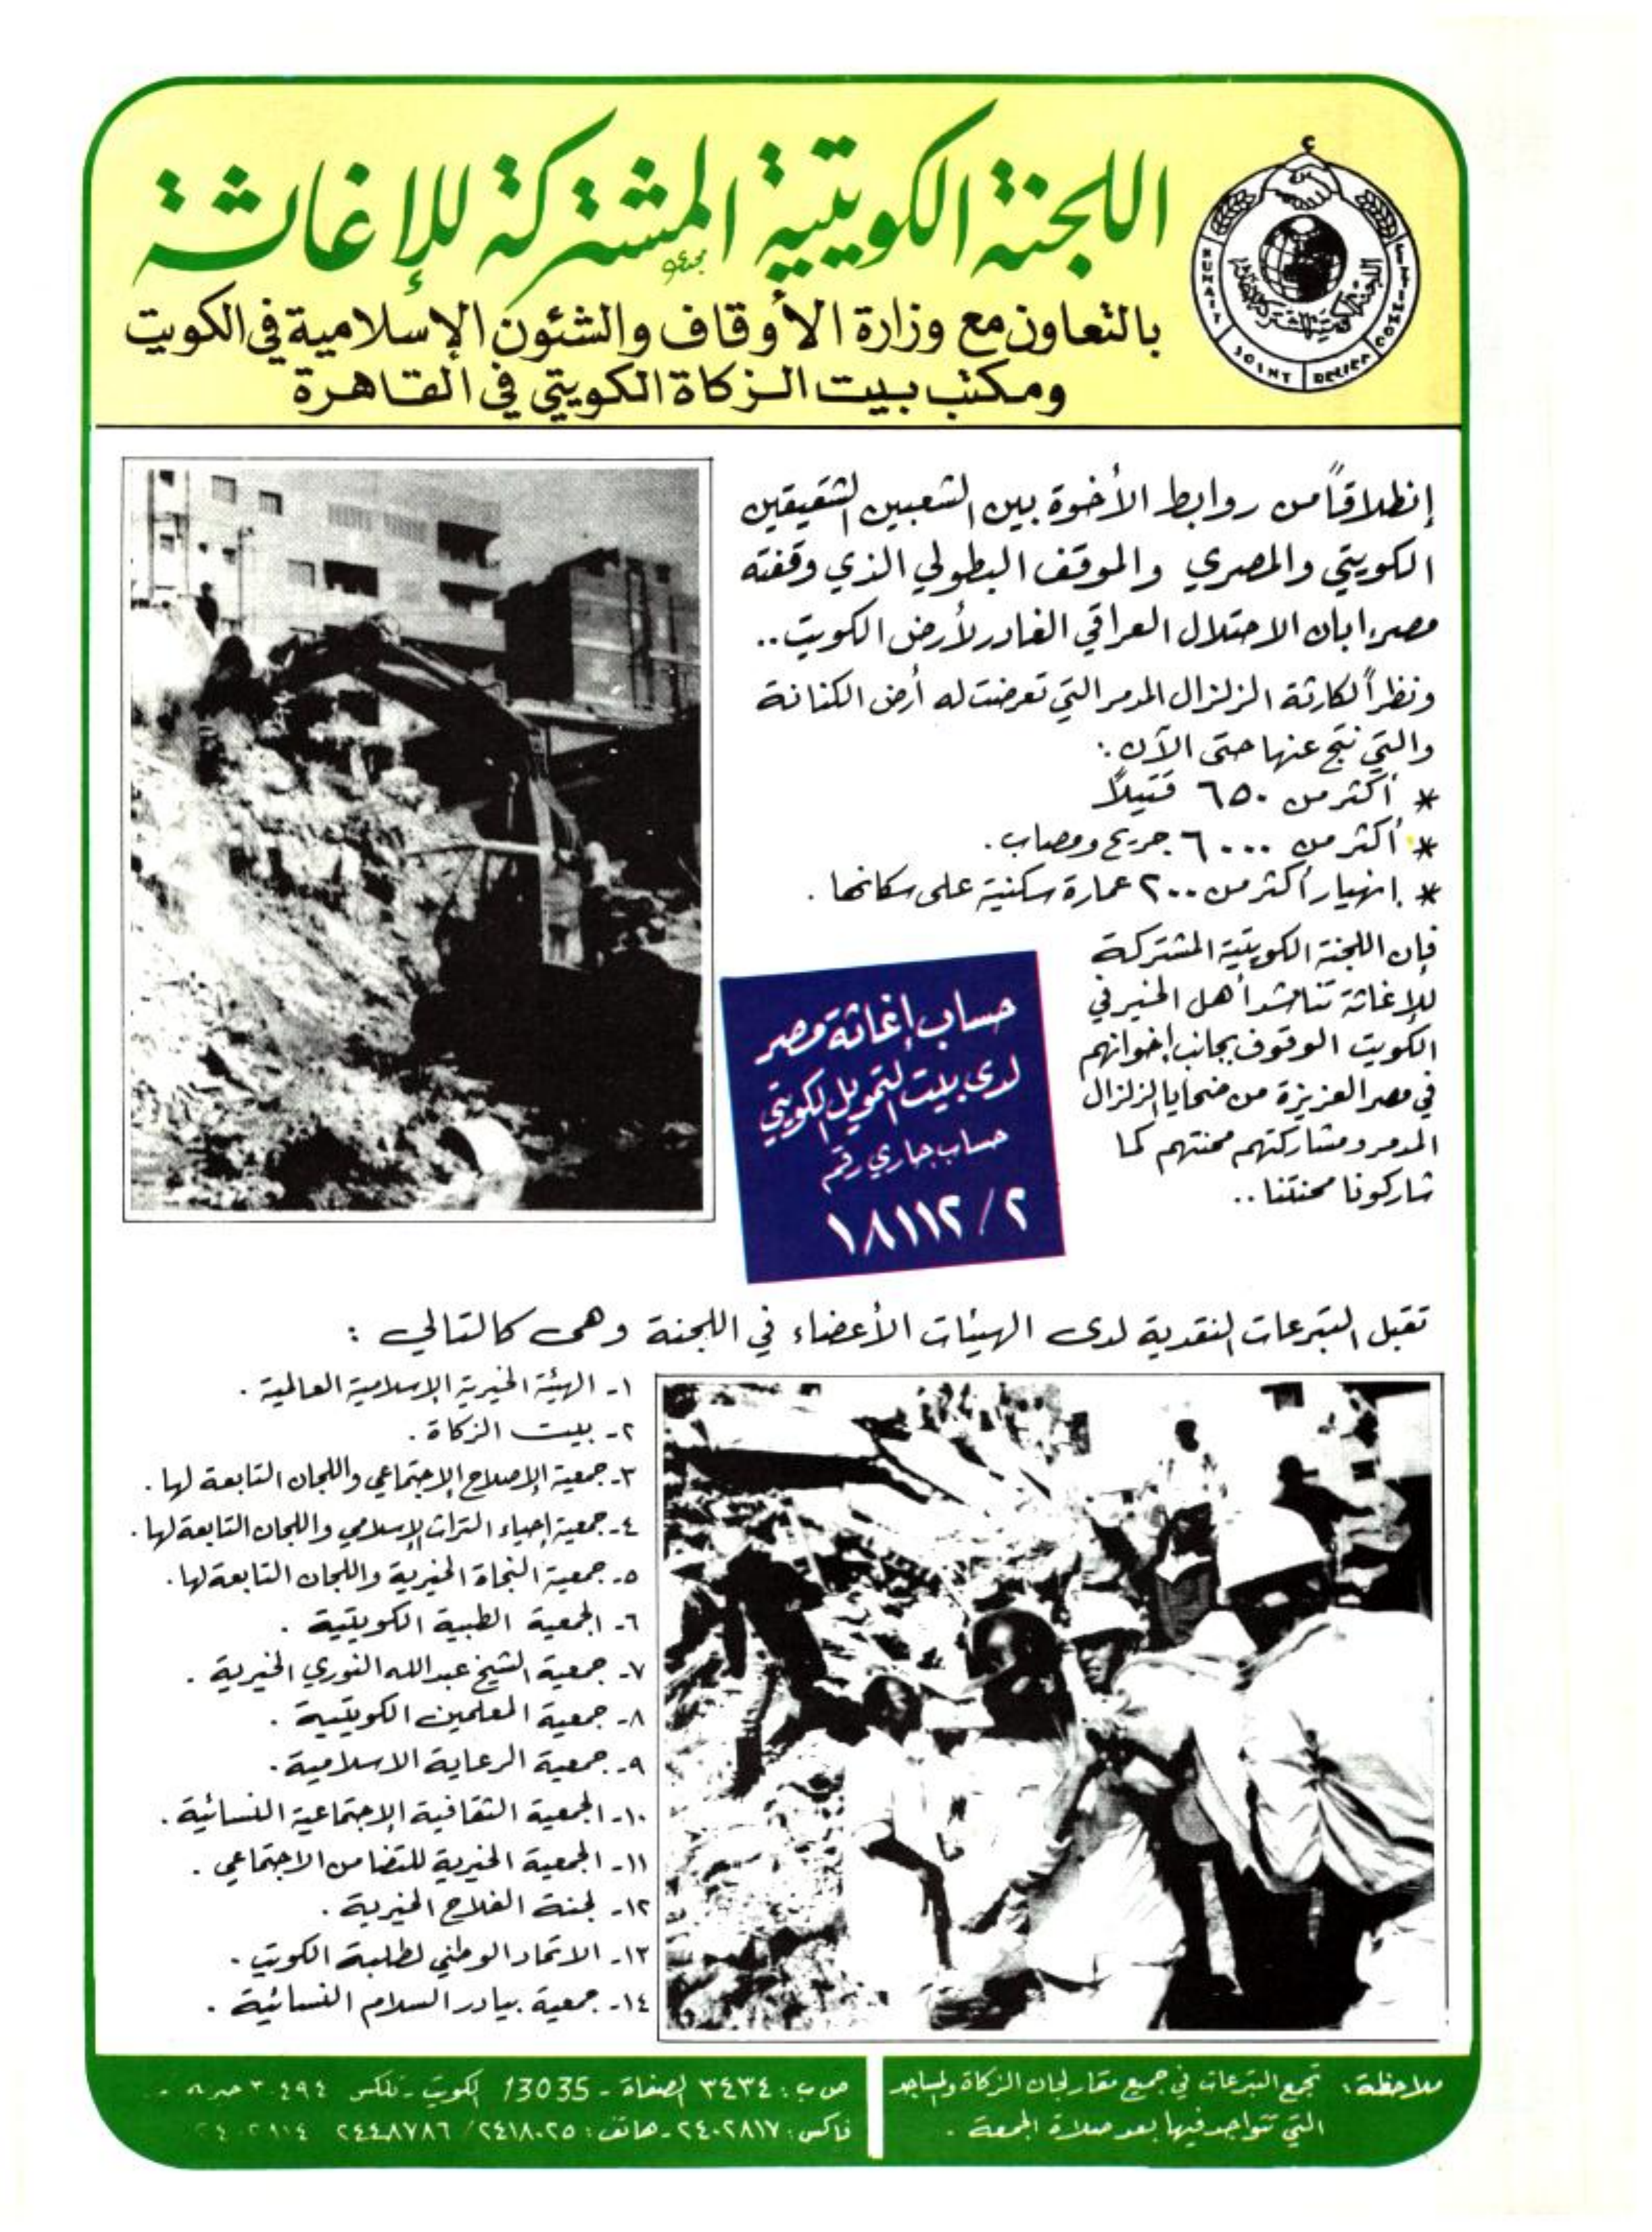 اللجنة الكويتية المشتركة للإغاثة
بالتعاون مع وزارة الأوقاف والشئون الإسلامية في الكويت
ومكتب بيت الزكاة الكويتي في القاهرة
KUWAIT JOINT RELIEF COMMITTEE
اللجنة الكويتية المشتركة للإغاثة
إنطلاقاً من روابط الأخوة بين الشعبين الشقيقين
الكويتي والمصري والموقف البطولي الذي وقفته
مصر ابان الاحتلال العراقي الغادر لأرض الكويت..
ونظراً لكارثة الزلزال المدمر التي تعرضت له أرض الكنانة
والتي نتج عنها حتى الآن :
* أكثر من ٦٥٠ قتيلاً
* أكثر من ٦٠٠٠ جريح ومصاب.
* إنهيار أكثر من ٢٠٠ عمارة سكنية على سكانها .
فإن اللجنة الكويتية المشتركة
للإغاثة تناشد أهل الخير في
الكويت الوقوف بجانب إخوانهم
في مصر العزيزة من ضحايا الزلزال
المدمر ومشاركتهم محنتهم كما
شاركونا محنتنا ..
حساب إغاثة مصر
لدى بيت التمويل الكويتي
حساب جاري رقم
١٨١١٢/٢
تقبل التبرعات النقدية لدى الهيئات الأعضاء في اللجنة وهى كالتالي :
١- الهيئة الخيرية الإسلامية العالمية .
٢- بيت الزكاة .
٣- جمعية الإصلاح الإجتماعي واللجان التابعة لها .
٤- جمعية إحياء التراث الإسلامي واللجان التابعة لها .
٥- جمعية النجاة الخيرية واللجان التابعة لها .
٦- الجمعية الطبية الكويتية .
٧- جمعية الشيخ عبدالله النوري الخيرية .
٨- جمعية المعلمين الكويتية .
٩- جمعية الرعاية الاسلامية .
١٠- الجمعية الثقافية الإجتماعية النسائية .
١١- الجمعية الخيرية للتضامن الاجتماعي .
١٢- لجنة الفلاح الخيرية .
١٣- الاتحاد الوطني لطلبة الكويت .
١٤- جمعية بيادر السلام النسائية .
ملاحظة : تجمع التبرعات في جميع مقار لجان الزكاة والمساجد
التي تتواجد فيها بعد صلاة الجمعة .
ص ب : ٣٤٣٤ الصفاة - 13035 الكويت - تلكس
فاكس : ٢٤٠٢٨١٧ - هاتف : ٢٤١٨٠٢٥ / ٢٤٤٨٧٨٦